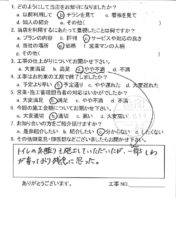 1. どのようにして当店をお知りになりましたか？
a 以前利用して b チラシを見て c 看板を見て
d 知人の紹介 e その他( )
2. 当店を利用するにあたって重視したことは何ですか？
a プランの内容 b 評判 c サービスや対応の良さ
d 当社の場所 e 総額 f 営業マンの人柄
g その他( )
3. 工事の仕上がりについてお聞かせ下さい。
a 大変満足 b 満足 c やや不満 d 不満
4. 工事はお約束の工期で終了しましたか？
a 予定より早い b 予定通り c やや遅れた d 大変遅れた
5. 施工管理担当者の対応はいかがでしたか？
a 大変満足 b 満足 c やや不満 d 不満
6. 今回の施工金額についてお聞かせ下さい。
a 大変適切 b 適切 c 高い d 大変高い
7. お知り合いの方をご紹介頂けますか？
a 是非紹介したい b 紹介したい c 分からない d したくない
8. その他御意見・御感想などございましたらお聞かせ下さい。
トイレのお貼りも施工していただいたが、一部しわ
が寄っており残念に思った。
ありがとうございます。 工事NO